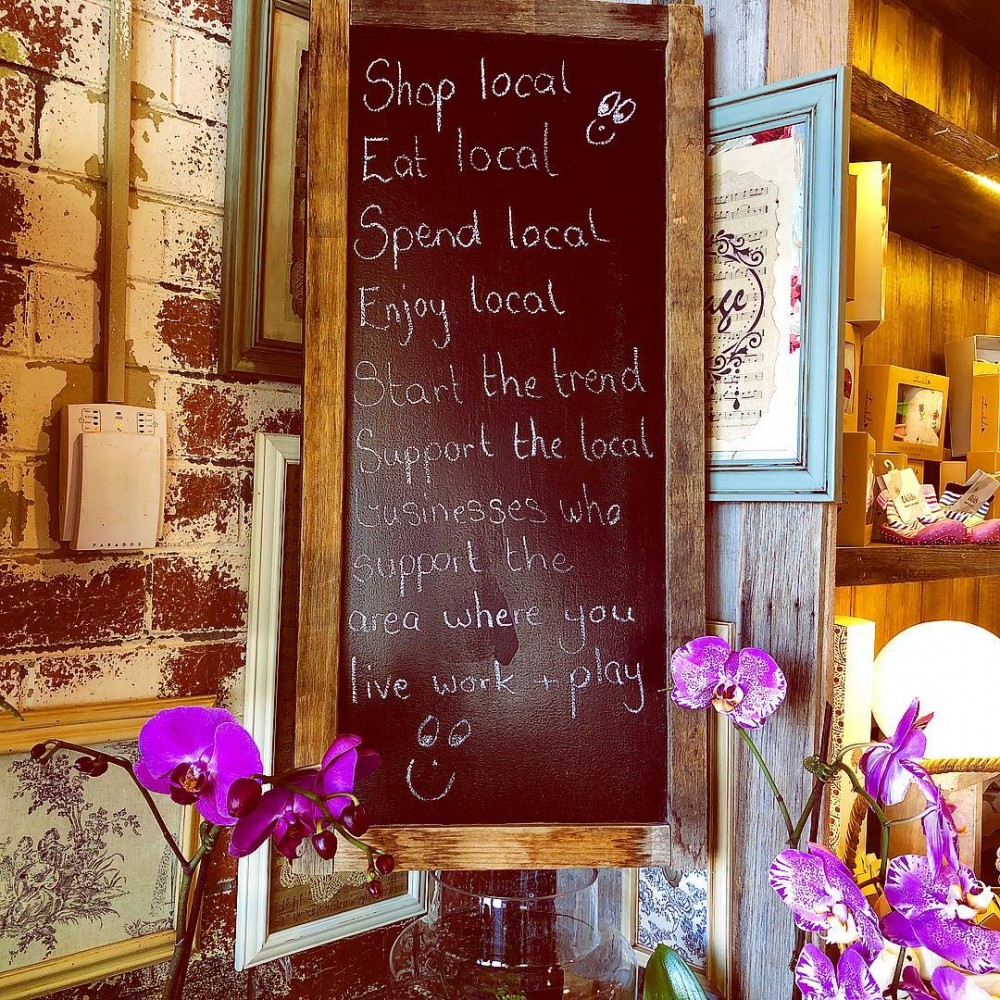 Shop local
Eat local
Spend local
Enjoy local
Start the trend
Support the local
businesses who
support the
area where you
live work + play
PARADOX